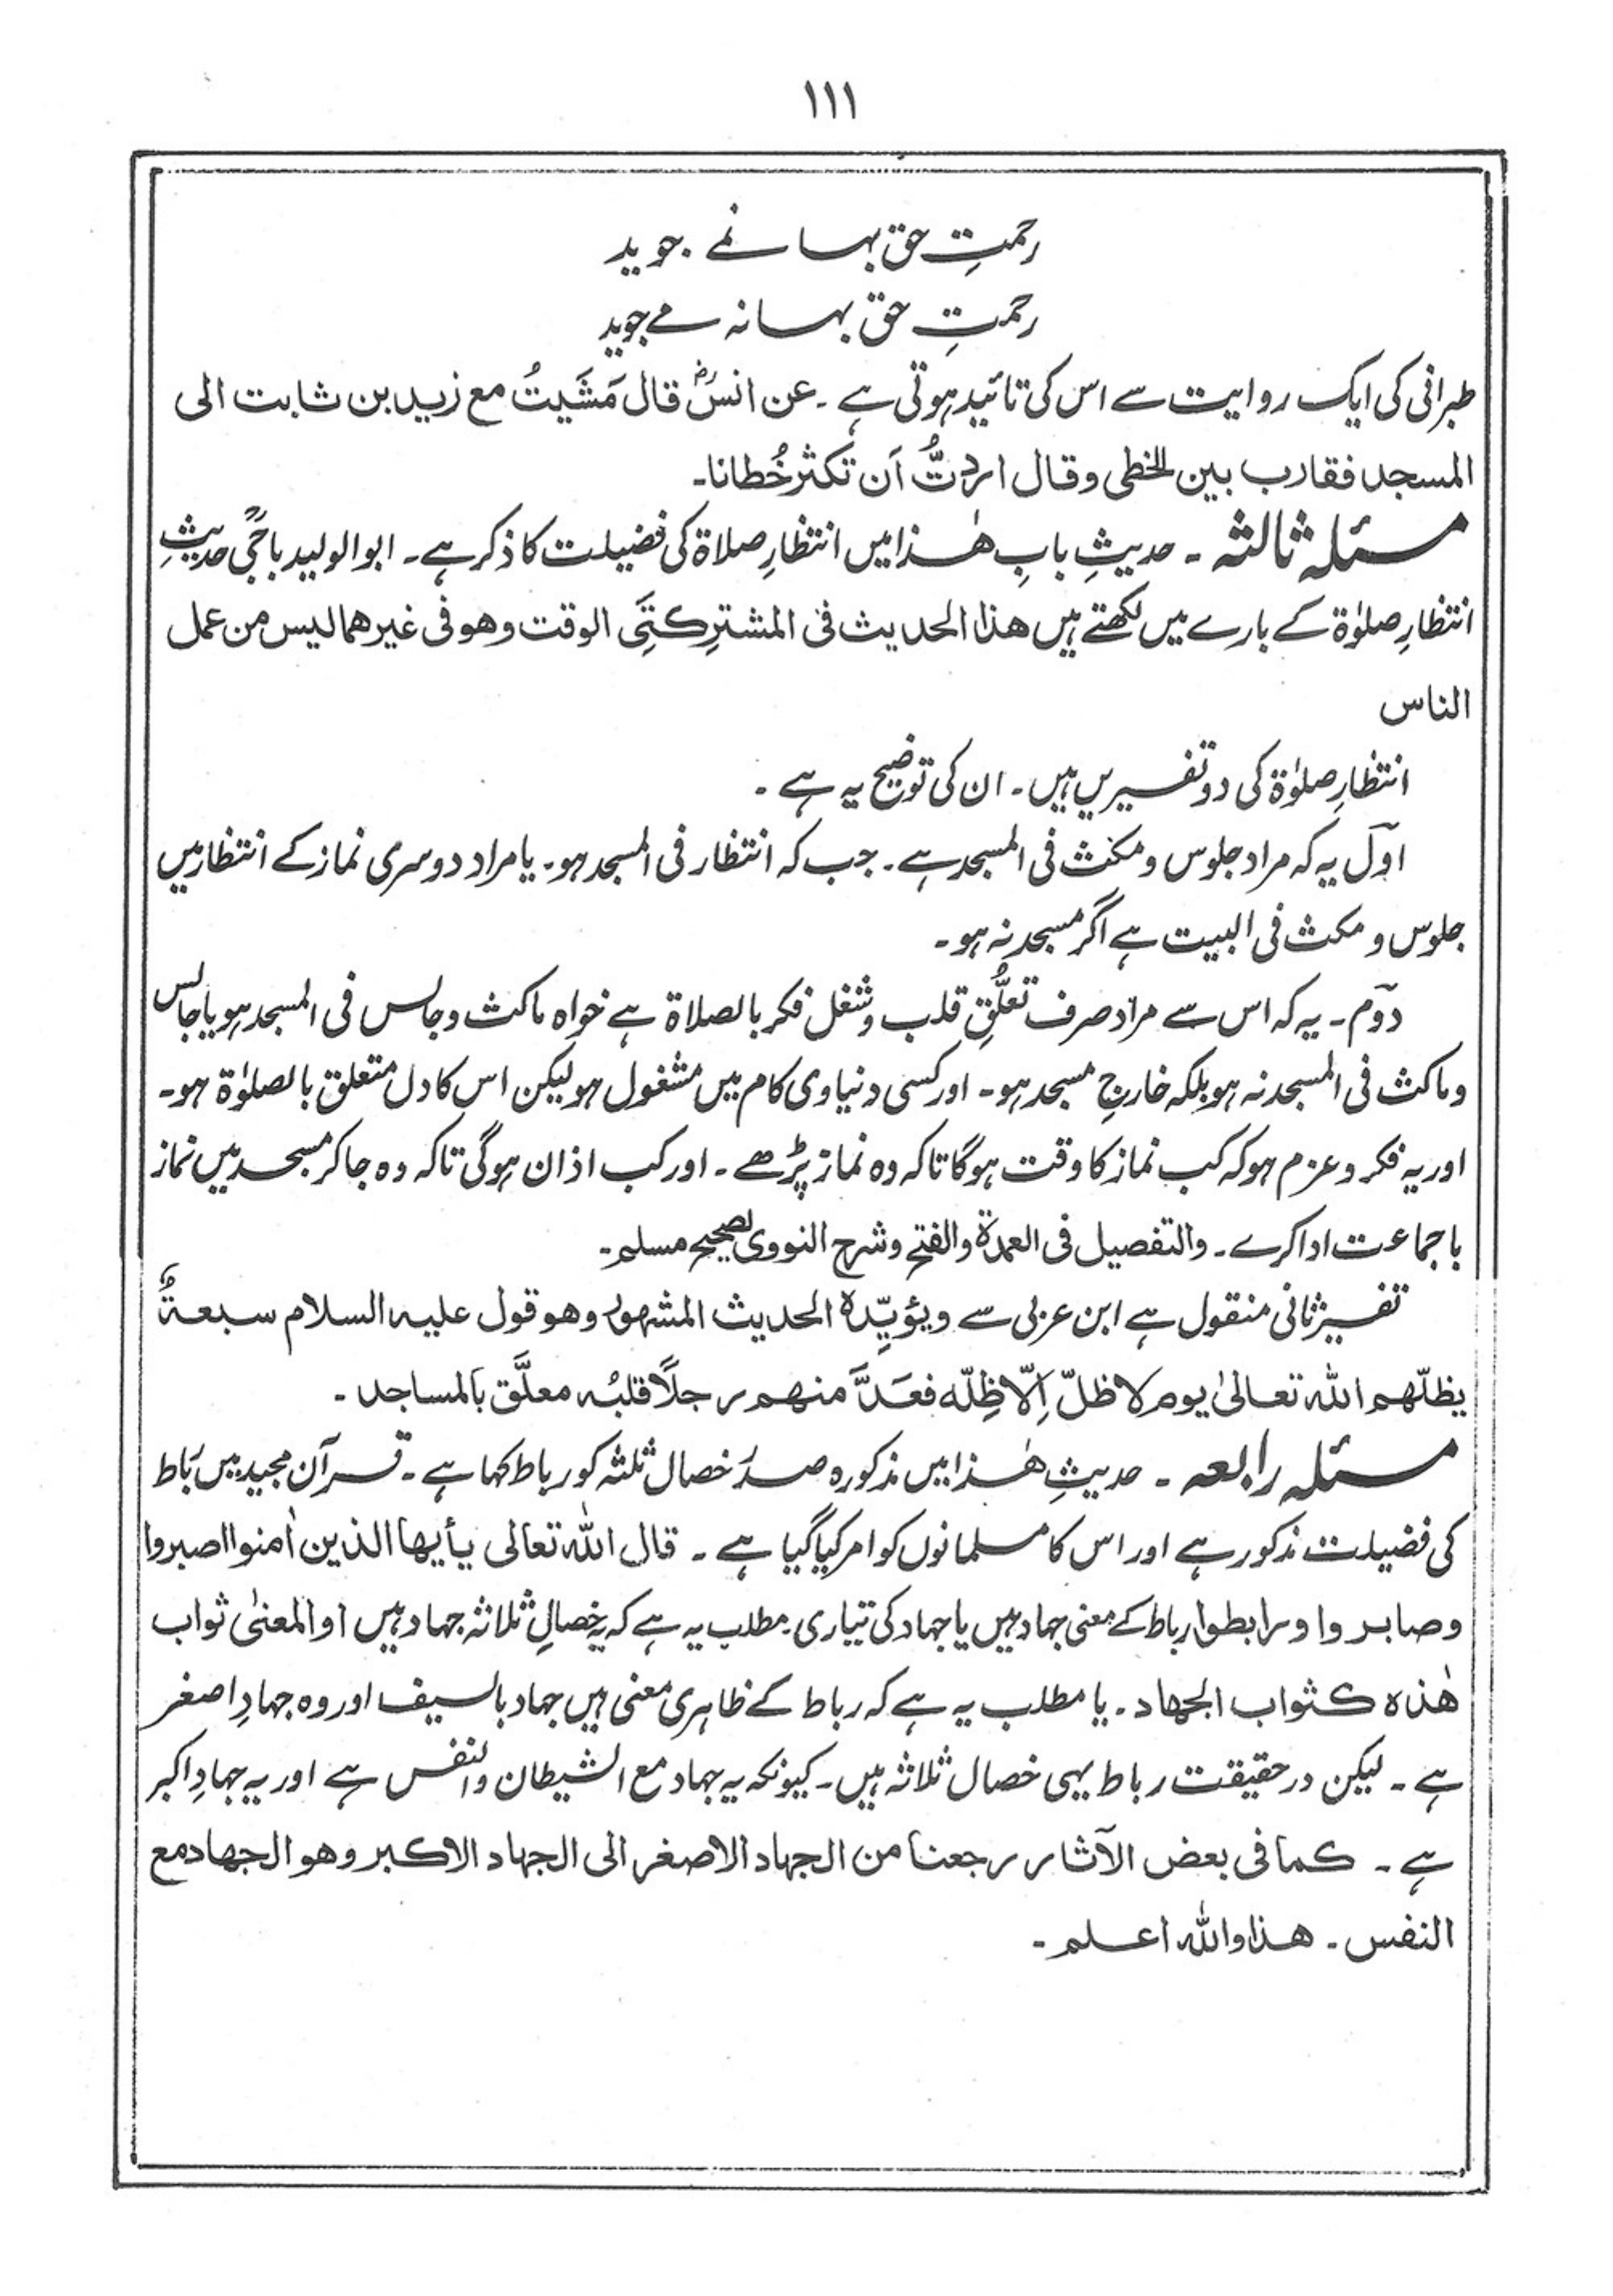 ۱۱۱
رحمتِ حق بہا نمے جوید
رحمتِ حق بہانہ مے جوید
طبرانی کی ایک روایت سے اس کی تائید ہوتی ہے ۔ عن انسؓ قال مَشَیتُ مع زید بن ثابت الی
المسجد فقارب بین الخطی وقال اردتُّ اَن تکثر خُطانا۔
مسئلہ ثالثہ ۔ حدیثِ بابِ ھٰذا میں انتظارِ صلاۃ کی فضیلت کا ذکر ہے ۔ ابوالولید باجیؒ حدیثِ
انتظارِ صلوٰۃ کے بارے میں لکھتے ہیں ھذا الحدیث فی المشترِکتَیِ الوقت وھو فی غیرھما لیس من عمل
الناس
انتظارِ صلوٰۃ کی دو تفسیریں ہیں ۔ ان کی توضیح یہ ہے ۔
اوّل یہ کہ مراد جلوس و مکث فی المسجد ہے ۔ جب کہ انتظار فی المسجد ہو ۔ یا مراد دوسری نماز کے انتظار میں
جلوس و مکث فی البیت ہے اگر مسجد نہ ہو ۔
دوّم ۔ یہ کہ اس سے مراد صرف تعلُّقِ قلب و شغل فکر بالصلاۃ ہے خواہ ماکث و جالس فی المسجد ہو یا جالس
و ماکث فی المسجد نہ ہو بلکہ خارجِ مسجد ہو ۔ اور کسی دنیاوی کام میں مشغول ہو لیکن اس کا دل متعلق بالصلوٰۃ ہو ۔
اور یہ فکر و عزم ہو کہ کب نماز کا وقت ہوگا تاکہ وہ نماز پڑھے ۔ اور کب اذان ہوگی تاکہ وہ جاکر مسجد میں نماز
باجماعت ادا کرے ۔ والتفصیل فی العمدۃ والفتح وشرح النووی لصحیح مسلم ۔
تفسیر ثانی منقول ہے ابن عربی سے ویؤیّدہ الحدیث المشہور وھو قول علیہ السلام سبعۃٌ
یظلّھم اللہ تعالیٰ یوم لا ظلّ اِلّا ظِلّہ فعَدَّ منھم رجلًا قلبُہ معلَّق بالمساجد ۔
مسئلہ رابعہ ۔ حدیثِ ھٰذا میں مذکورہ صدر خصال ثلٰثہ کو رباط کہا ہے ۔ قرآن مجید میں رباط
کی فضیلت مذکور ہے اور اس کا مسلمانوں کو امر کیا گیا ہے ۔ قال اللہ تعالی یٰأیھا الذین اٰمنوا اصبروا
وصابروا ورابطوا رباط کے معنی جہاد ہیں یا جہاد کی تیاری ۔ مطلب یہ ہے کہ یہ خصالِ ثلاثہ جہاد ہیں او المعنیٰ ثواب
ھٰذہ کثواب الجھاد ۔ یا مطلب یہ ہے کہ رباط کے ظاہری معنی ہیں جہاد بالسیف اور وہ جہادِ اصغر
ہے ۔ لیکن درحقیقت رباط یہی خصال ثلاثہ ہیں ۔ کیونکہ یہ جہاد مع الشیطان والنفس ہے اور یہ جہادِ اکبر
ہے ۔ کما فی بعض الآثار رجعنا من الجہاد الاصغر الی الجہاد الاکبر وھو الجھاد مع
النفس ۔ ھذا واللہ اعلم ۔